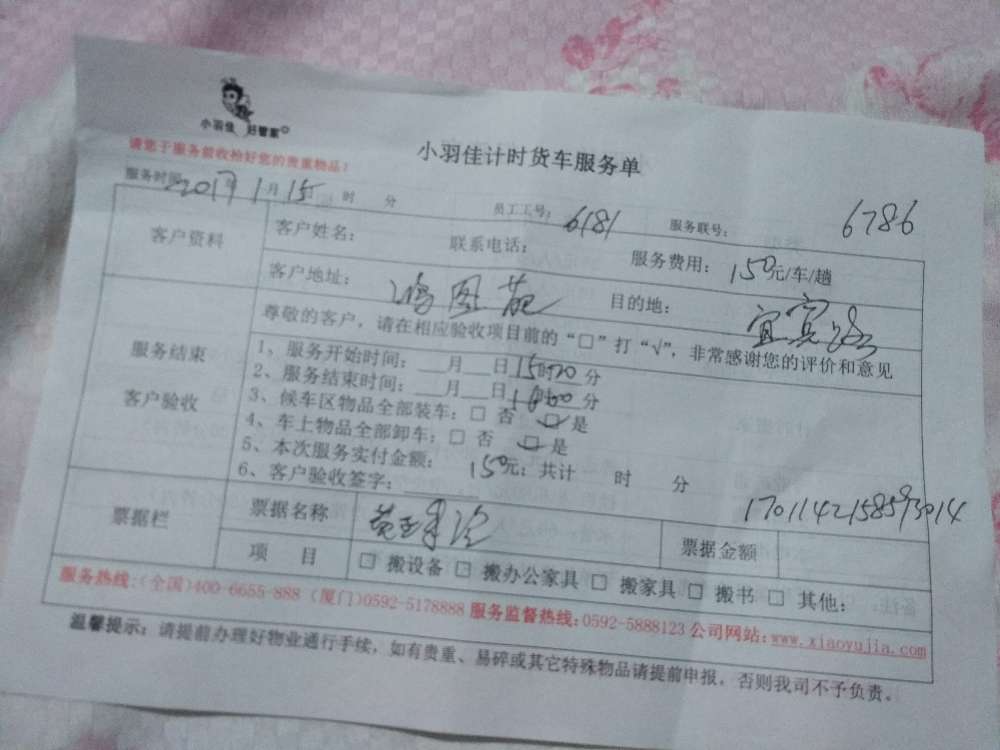 小羽佳 好管家
小羽佳计时货车服务单
请您于服务前收拾好您的贵重物品！
服务时间 2017年1月15日 时 分 员工工号：6181 服务联号：6786
客户资料 客户姓名： 联系电话： 服务费用：150元/车/趟
客户地址： 图苑 目的地：宜宾路
服务结束 客户验收
尊敬的客户，请在相应验收项目前的“□”打“√”，非常感谢您的评价和意见
1、服务开始时间：___月___日1500分
2、服务结束时间：___月___日1600分
3、候车区物品全部装车：□ 否 ☑是
4、车上物品全部卸车：□ 否 ☑是
5、本次服务实付金额： 150元；共计 时 分
6、客户验收签字：
1701142158593014
票据栏 票据名称 票据金额
项 目 □ 搬设备 □ 搬办公家具 □ 搬家具 □ 搬书 □ 其他：
服务热线：(全国)400-6655-888 (厦门)0592-5178888 服务监督热线：0592-5888123 公司网站：www.xiaoyujia.com
温馨提示：请提前办理好物业通行手续，如有贵重、易碎或其它特殊物品请提前申报，否则我司不予负责。